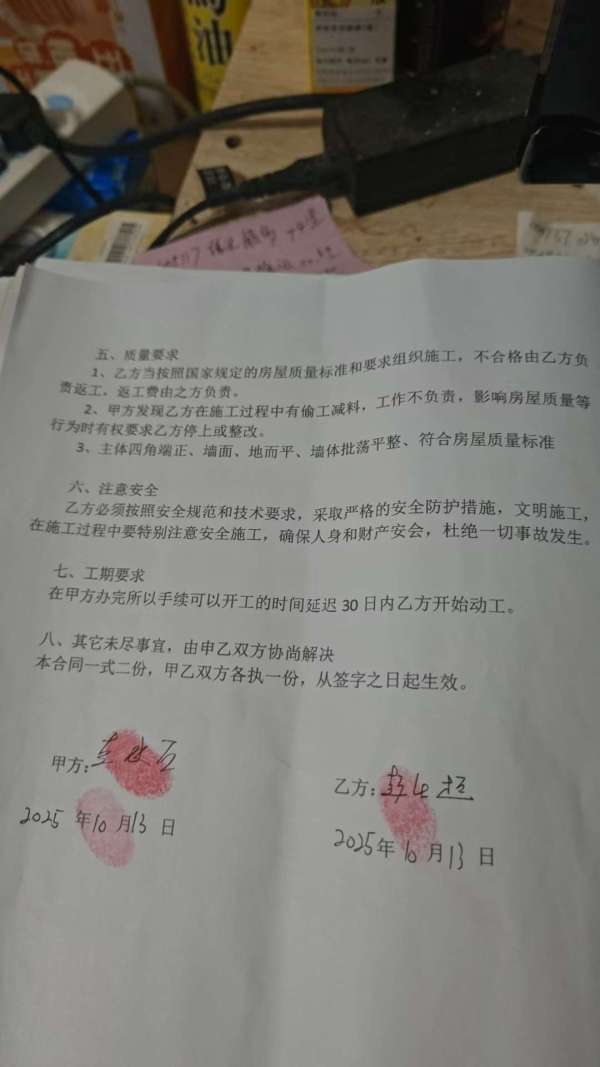 油
五、质量要求
1、乙方当按照国家规定的房屋质量标准和要求组织施工，不合格由乙方负
责返工，返工费由之方负责。
2、甲方发现乙方在施工过程中有偷工减料，工作不负责，影响房屋质量等
行为时有权要求乙方停上或整改。
3、主体四角端正、墙面、地而平、墙体批荡平整、符合房屋质量标准
六、注意安全
乙方必须按照安全规范和技术要求，采取严格的安全防护措施，文明施工，
在施工过程中要特别注意安全施工，确保人身和财产安会，杜绝一切事故发生。
七、工期要求
在甲方办完所以手续可以开工的时间延迟 30 日内乙方开始动工。
八、其它未尽事宜，由申乙双方协尚解决
本合同一式二份，甲乙双方各执一份，从签字之日起生效。
甲方：
乙方：
2025 年 10 月 13 日
2025 年 10 月 13 日